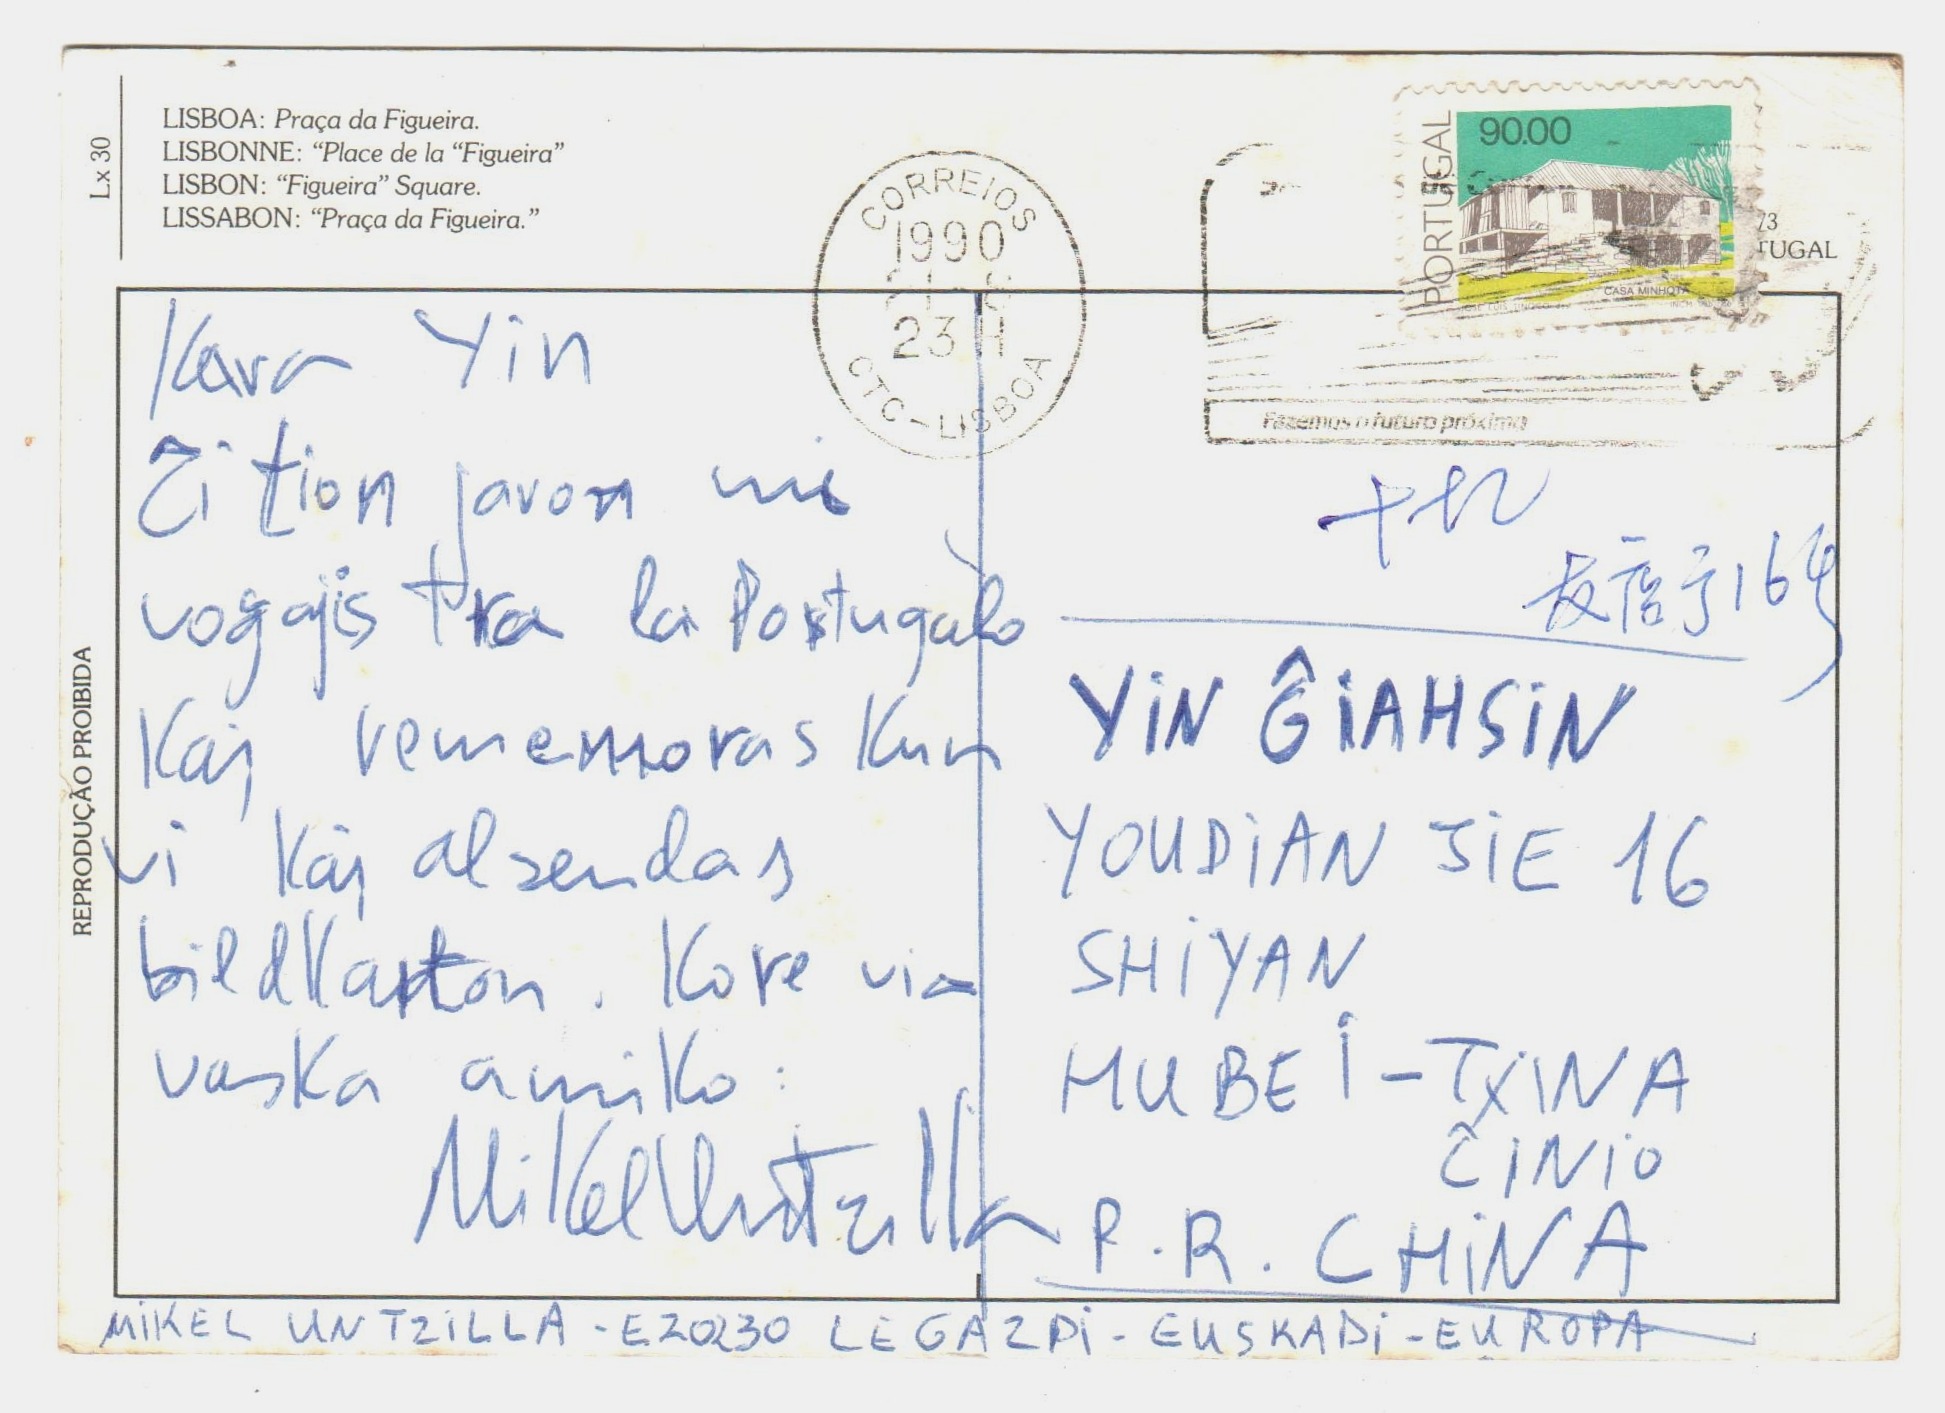 Lx 30
LISBOA: Praça da Figueira.
LISBONNE: “Place de la “Figueira”
LISBON: “Figueira” Square.
LISSABON: “Praça da Figueira.”
REPRODUÇÃO PROIBIDA
CORREIOS
1990
23 H
CTC - LISBOA
PORTUGAL
90.00
CASA MINHOTA
73
TUGAL
Fazemos o futuro próximo
Kara Yin
Ĉi tion javon mi
voğajis tra la Portugalo
Kaj rememoras Kun
vi Kaj alsendas
bildKarton. Kore via
vaska amiKo:
Mikel Untzilla
十堰
友谊街16号
YiN ĜiAHSiN
YOUDiAN JiE 16
SHiYAN
HUBEi - TXiNA
ĈiNiO
P.R. CHiNA
MiKEL UNTZiLLA - E20230 LEGAZPi - EUSKADi - EUROPA